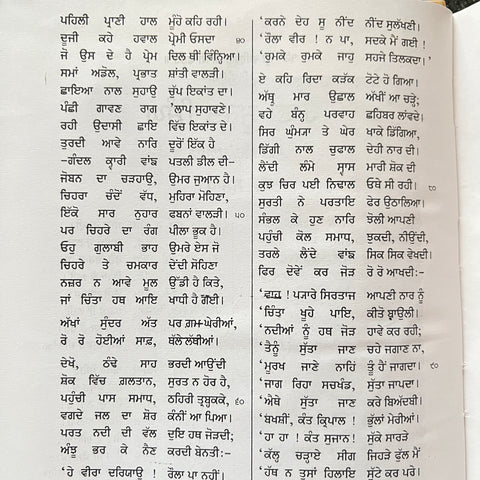 ਪਹਿਲੀ ਪ੍ਰਾਣੀ ਹਾਲ ਮੂੰਹੋ ਕਹਿ ਰਹੀ।
ਦੂਜੀ ਕਰੇ ਹਵਾਲ ਪ੍ਰੇਮੀ ਓਸਦਾ ੪੦
ਜੋ ਉਸ ਦੇ ਹੈ ਪ੍ਰੇਮ ਦਿਲ ਥੀਂ ਵਿੰਨ੍ਹਿਆ।
ਸਮਾਂ ਅਡੋਲ, ਪ੍ਰਭਾਤ ਸ਼ਾਂਤੀ ਵਾਲੜੀ।
ਛਾਇਆ ਨਾਲ ਸੁਹਾਉ ਚੁੱਪ ਇਕਾਂਤ ਦਾ।
ਪੰਛੀ ਗਾਵਣ ਰਾਗ 'ਲਾਪ ਸੁਹਾਵਣੇ।
ਰਹੀ ਉਦਾਸੀ ਛਾਇ ਵਿੱਚ ਇਕਾਂਤ ਦੇ।
ਤੁਰਦੀ ਆਵੇ ਨਾਰਿ ਦੂਰੋਂ ਇੱਕ ਹੈ
-ਗੰਦਲ ਕ੍ਵਾਰੀ ਵਾਂਙ ਪਤਲੀ ਡੀਲ ਦੀ-
ਜੋਬਨ ਦਾ ਚੜਹਾਉ, ਉਮਰ ਜੁਆਨ ਹੈ।
ਚਿਹਰਾ ਚੰਦੋਂ ਵੱਧ, ਮੁਹਿਰਾ ਮੋਹਿਣਾ,
ਇੱਕੋ ਸਾਰ ਨੁਹਾਰ ਫਬਨਾਂ ਵਾਲੜੀ। ੫੦
ਪਰ ਚਿਹਰੇ ਦਾ ਰੰਗ ਪੀਲਾ ਭੂਕ ਹੈ।
ਓਹੁ ਗੁਲਾਬੀ ਭਾਹ ਉਮਰੇ ਏਸ ਜੋ
ਚਿਹਰੇ ਤੇ ਚਮਕਾਰ ਦੇਂਦੀ ਸੋਹਿਣਾ
ਨਜ਼ਰ ਨ ਆਵੇ ਮੂਲ ਉੱਡੀ ਹੈ ਕਿਤੇ,
ਜਾਂ ਚਿੰਤਾ ਹਥ ਆਇ ਖਾਧੀ ਹੈ ਗੋਈ।
ਅੱਖਾਂ ਸੁੰਦਰ ਅੱਤ ਪਰ ਗ਼ਮ-ਘੇਰੀਆਂ,
ਰੋ ਰੋ ਹੋਈਆਂ ਸਾਫ਼, ਥੱਲੇ ਲੱਥੀਆਂ।
ਦੇਖੋ, ਠੰਢੇ ਸਾਹ ਭਰਦੀ ਆਉਂਦੀ
ਸ਼ੋਕ ਵਿੱਚ ਗ਼ਲਤਾਨ, ਸੁਰਤ ਨ ਹੋਰ ਹੈ,
ਪਹੁੰਚੀ ਪਾਸ ਸਮਾਧ, ਠਹਿਰੀ ਤ੍ਰਬੁਕਕੇ, ੬੦
ਵਗਦੇ ਜਲ ਦਾ ਸ਼ੋਰ ਕੰਨੀਂ ਆ ਪਿਆ।
ਪਰਤ ਨਦੀ ਦੀ ਵੱਲ ਦੁਇ ਹਥ ਜੋੜਦੀ;
ਅੰਝੂ ਭਰ ਕੇ ਨੈਣ ਕਰਦੀ ਬੇਨਤੀ:-
'ਹੇ ਵੀਰਾ ਦਰਿਯਾਉ ! ਰੌਲਾ ਪਾ ਨਹੀਂ।
'ਕਰਨੇ ਦੇਹ ਸੁ ਨੀਂਦ ਨੀਂਦ ਸੁਲੱਖਣੀ।
'ਰੌਲਾ ਵੀਰ ! ਨ ਪਾ, ਸਦਕੇ ਮੈਂ ਗਈ !
'ਰੁਮਕੇ ਰੁਮਕੇ ਜਾਹੁ ਸਹਜੇ ਤਿਲਕਦਾ।'
ਏ ਕਹਿ ਰਿਦਾ ਕੜੱਕ ਟੋਟੇ ਹੋ ਗਿਆ।
ਅੱਥੂ ਮਾਰ ਉਛਾਲ ਅੱਖੀਂ ਆ ਚੜ੍ਹੇ;
ਵਹੇ ਬੰਨ੍ਹ ਪਰਵਾਹ ਛਹਿਬਰ ਲਾਂਵਦੇ।
ਸਿਰ ਘੁੰਮ੍ਯਾ ਤੇ ਘੇਰ ਖਾਕੇ ਡਿੱਗਿਆ,
ਡਿੱਗੀ ਨਾਲ ਚੁਫਾਲ ਦੇਹੀ ਨਾਰ ਦੀ।
ਲੈਂਦੀ ਲੰਮੇ ਸ੍ਵਾਸ ਮਾਰੀ ਸ਼ੋਕ ਦੀ
ਕੁਝ ਚਿਰ ਪਈ ਨਿਢਾਲ ਓਥੇ ਸੀ ਰਹੀ। ੮੦
ਸੁਰਤੀ ਨੇ ਪਰਤਾਇ ਫੇਰ ਉਠਾਲਿਆ।
ਸੰਭਲ ਕੇ ਹੁਣ ਨਾਰਿ ਝੋਲੀ ਆਪਣੀ
ਪਹੁੰਚੀ ਕੋਲ ਸਮਾਧ, ਝੁਕਦੀ, ਨੀਉਂਦੀ,
ਤਰਲੇ ਲੈਂਦੇ ਵਾਂਙ ਸਿਕ ਸਿਕ ਵੇਖਦੀ।
ਫਿਰ ਦੋਵੇਂ ਕਰ ਜੋੜ ਰੋ ਰੋ ਆਖਦੀ:-
! ਪ੍ਯਾਰੇ ਸਿਰਤਾਜ ਆਪਣੀ ਨਾਰ ਨੂੰ
'ਚਿੰਤਾ ਖੂਹੇ ਪਾਇ, ਕੀਤੋ ਬ੍ਵਾਉਲੀ।
'ਨਦੀਆਂ ਨੂੰ ਹਥ ਜੋੜ ਹਾਵੇ ਕਰ ਰਹੀ;
'ਤੈਨੂੰ ਸੁੱਤਾ ਜਾਣ ਚਹੇ ਜਗਾਣ ਨਾ,
'ਮੂਰਖ ਜਾਣੇ ਨਾਹਿੰ ਤੂੰ ਹੈਂ ਜਾਗਦਾ। ੯੦
'ਜਾਗ ਰਿਹਾ ਸਚਖੰਡ, ਸੁੱਤਾ ਜਾਪਦਾ।
'ਐਥੇ ਸੁੱਤਾ ਜਾਣ ਕਰੇ ਬਿਅੱਦਬੀ।
'ਬਖਸ਼ੀਂ, ਕੰਤ ਕ੍ਰਿਪਾਲ ! ਭੁੱਲਾਂ ਮੇਰੀਆਂ।
'ਹਾ ਹਾ ! ਕੰਤ ਸੁਜਾਨ! ਸੁੱਕੇ ਸਾਰੜੇ
'ਕੱਲ੍ਹ ਚੜ੍ਹਾਏ ਸੀਗ ਜਿਹੜੇ ਫੁੱਲ ਮੈਂ
'ਹੱਥ ਨ ਤੁਸਾਂ ਹਿਲਾਇ ਸੁੱਟੇ ਕਰ ਪਰੇ।